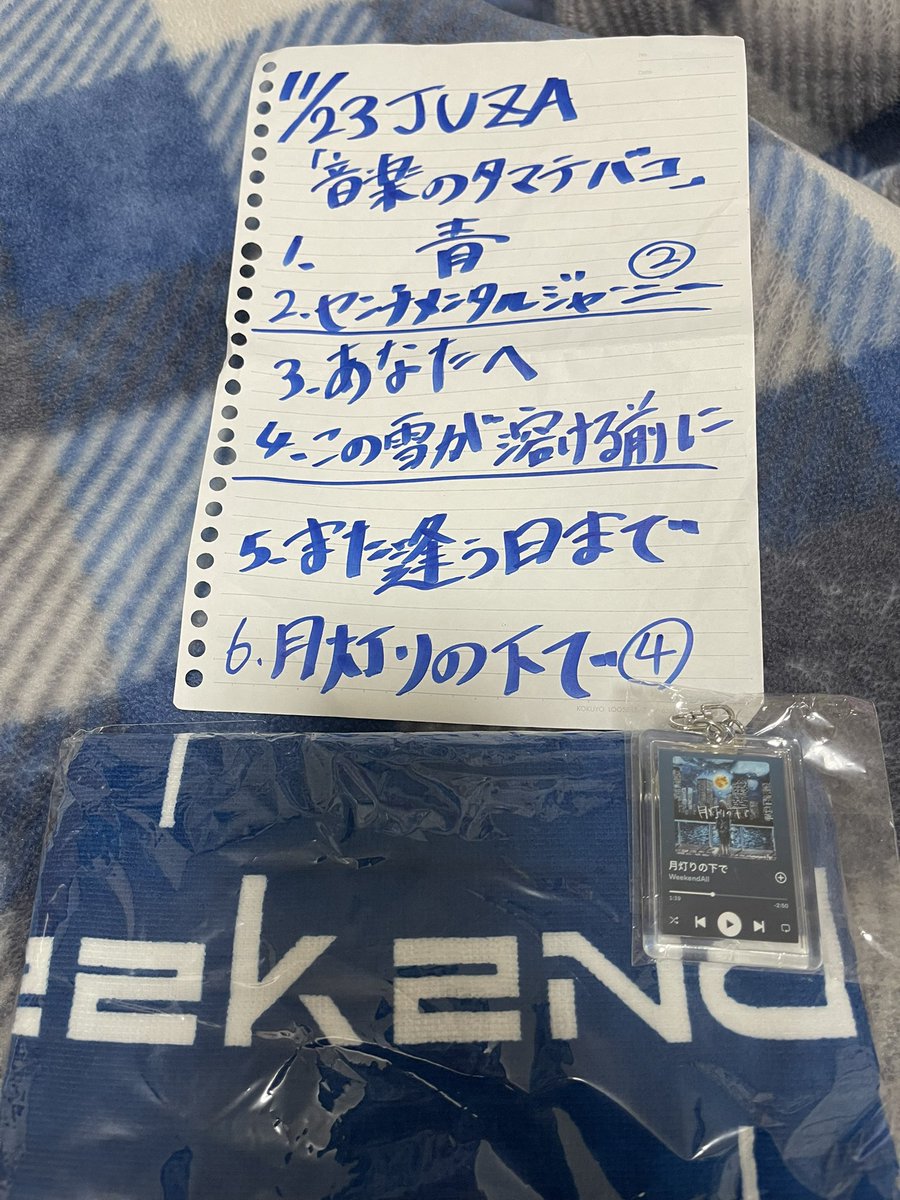 11/23 JUZA
「音楽のタマテバコ」
1. 青
2. センチメンタルジャーニー ②
3. あなたへ
4. この雪が溶ける前に
5. また逢う日まで
6. 月灯りの下で ④
KOKUYO LOOSE
eekend
月灯りの下で
月灯りの下で
WeekendAll
1:39
-2:50